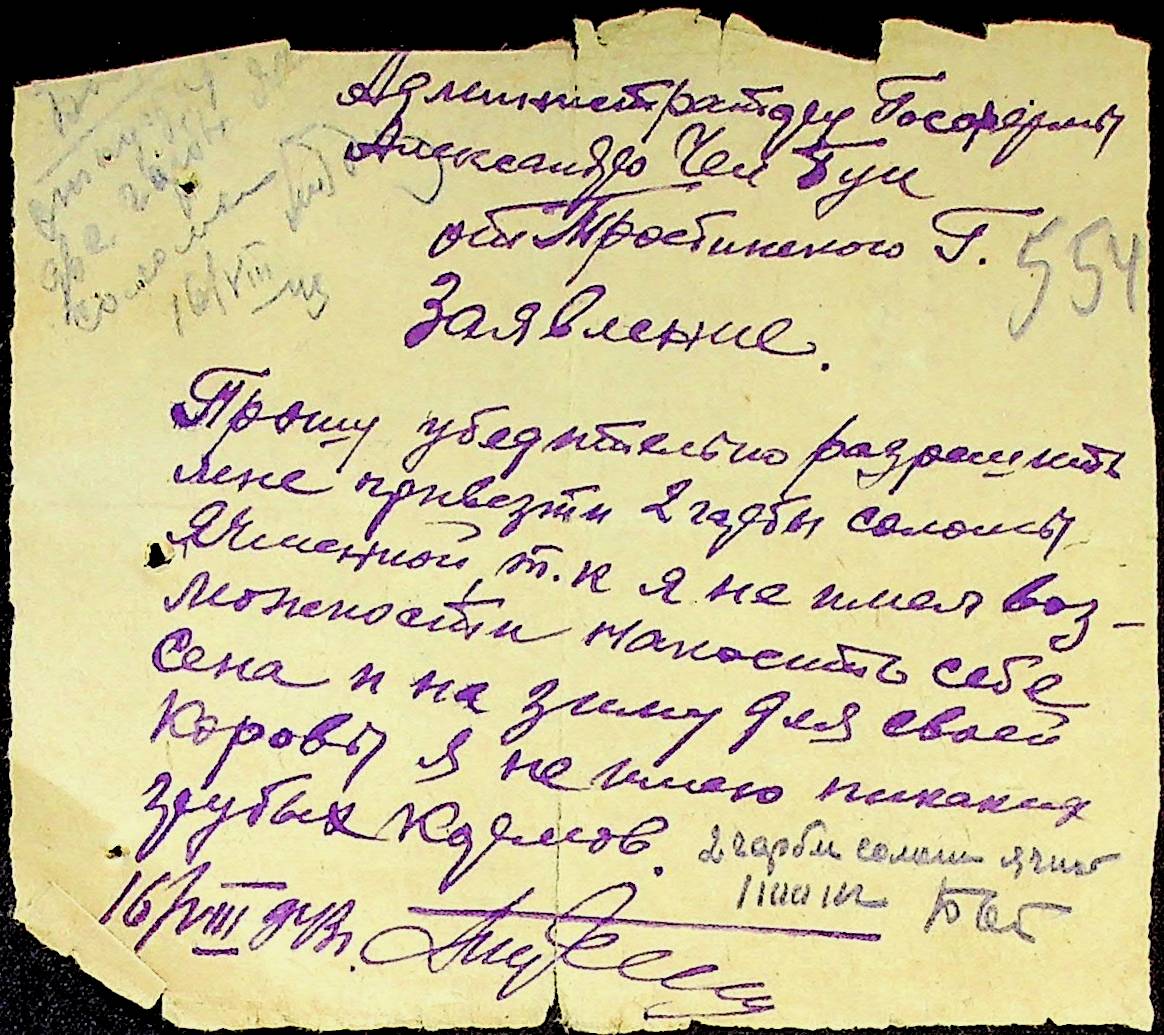 Администратору Госфермы
Александро Чем Гуи
от Тростинского Г.
554
Заявление.
Прошу убедительно разрешить
мне привезти 2 гарбы соломы
Ячменной, т.к я не имел воз-
можности накосить себе
сена и на зиму для своей
Коровы я не имею никаких
грубых Кормов.
2 гарбы соломи
16/VIII 43г.
два
16/VIII 43